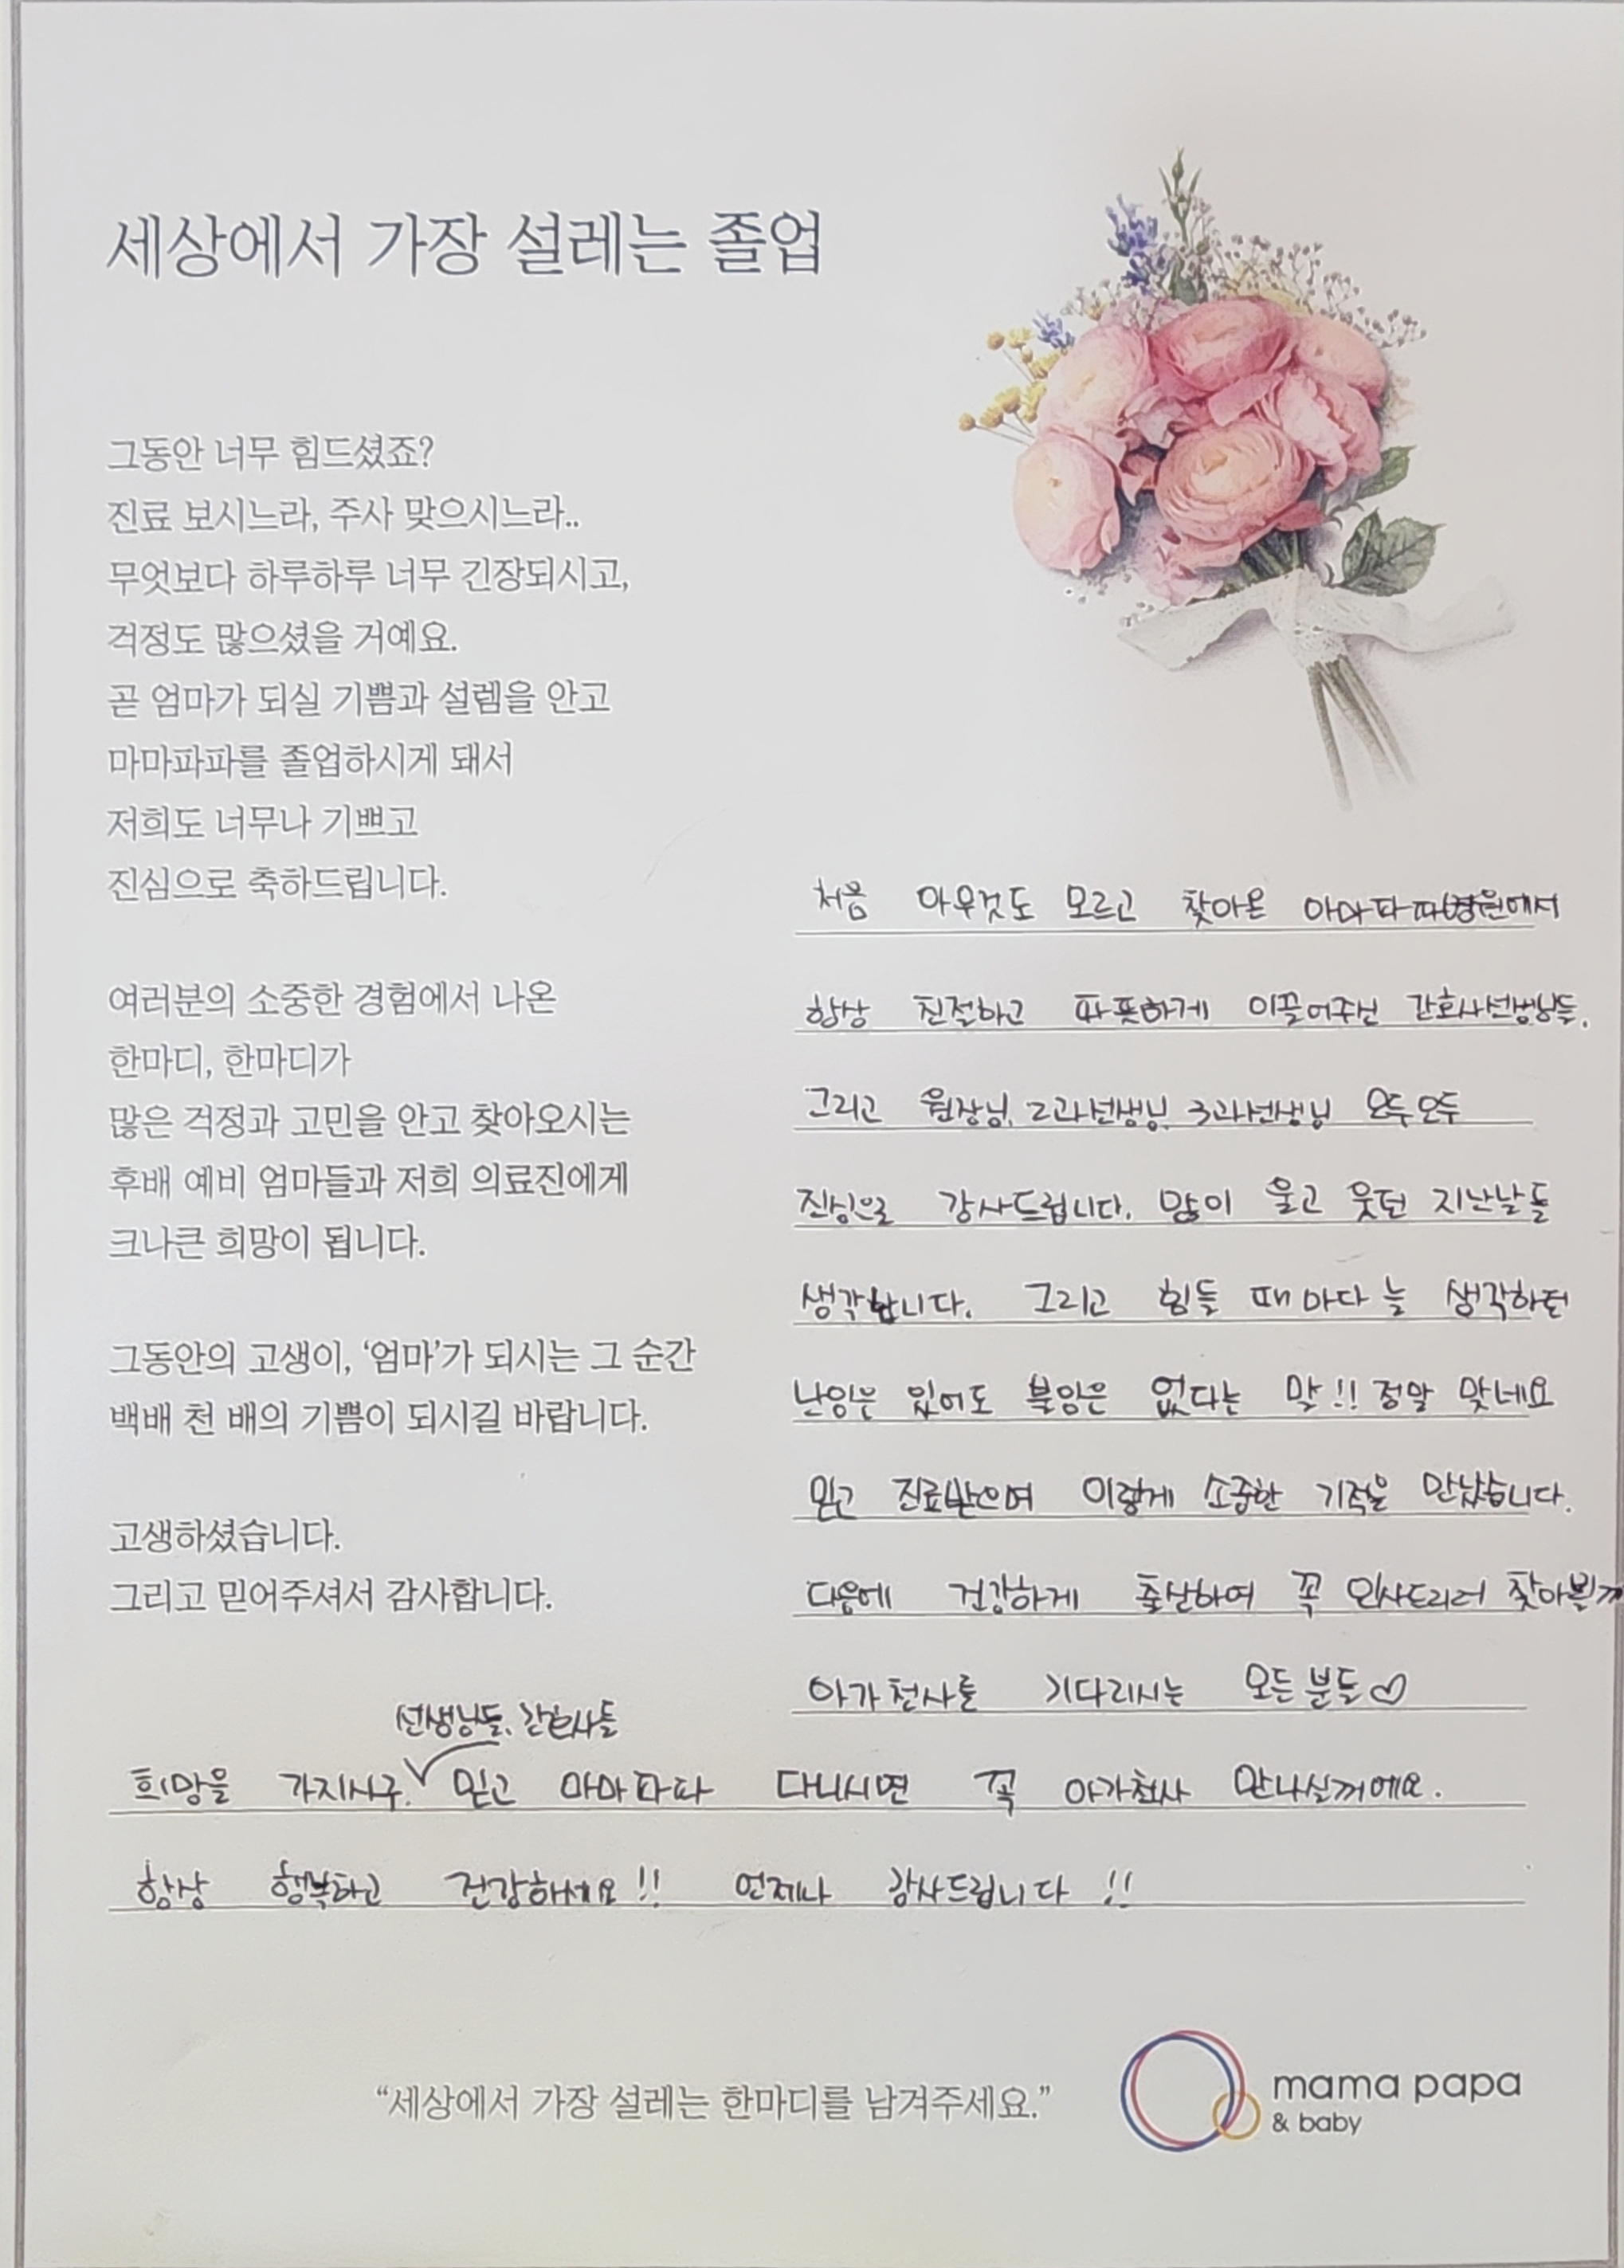 세상에서 가장 설레는 졸업
그동안 너무 힘드셨죠?
진료 보시느라, 주사 맞으시느라..
무엇보다 하루하루 너무 긴장되시고,
걱정도 많으셨을 거예요.
곧 엄마가 되실 기쁨과 설렘을 안고
마마파파를 졸업하시게 돼서
저희도 너무나 기쁘고
진심으로 축하드립니다.
여러분의 소중한 경험에서 나온
한마디, 한마디가
많은 걱정과 고민을 안고 찾아오시는
후배 예비 엄마들과 저희 의료진에게
크나큰 희망이 됩니다.
그동안의 고생이, ‘엄마’가 되시는 그 순간
백배 천 배의 기쁨이 되시길 바랍니다.
고생하셨습니다.
그리고 믿어주셔서 감사합니다.
처음 아무것도 모르고 찾아온 마마파파병원에서
항상 친절하고 따뜻하게 이끌어주신 간호사선생님들,
그리고 원장님, 2과선생님, 3과선생님 모두모두
진심으로 감사드립니다. 많이 울고 웃던 지난날들
생각합니다. 그리고 힘들 때마다 늘 생각하던
난임은 있어도 불임은 없다는 말!! 정말 맞네요
믿고 진료받으며 이렇게 소중한 기적을 만났습니다.
다음에 건강하게 출산하여 꼭 인사드리러 찾아뵐께
아가천사를 기다리시는 모든 분들♡
선생님들, 간호사들
희망을 가지시구, 믿고 마마파파 다니시면 꼭 아가천사 만나실꺼에요.
항상 행복하고 건강하세요!! 언제나 감사드립니다!!
“세상에서 가장 설레는 한마디를 남겨주세요.”
mama papa
& baby